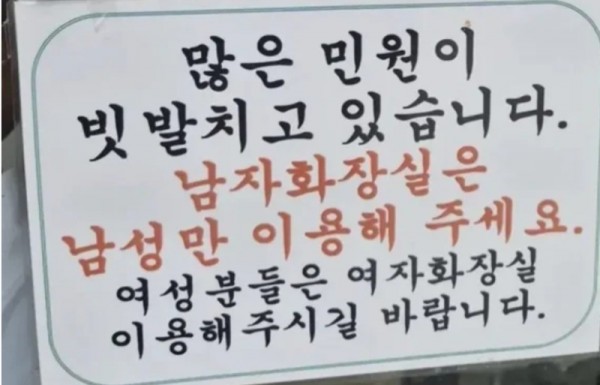 많은 민원이
빗발치고 있습니다.
남자화장실은
남성만 이용해 주세요.
여성분들은 여자화장실
이용해주시길 바랍니다.